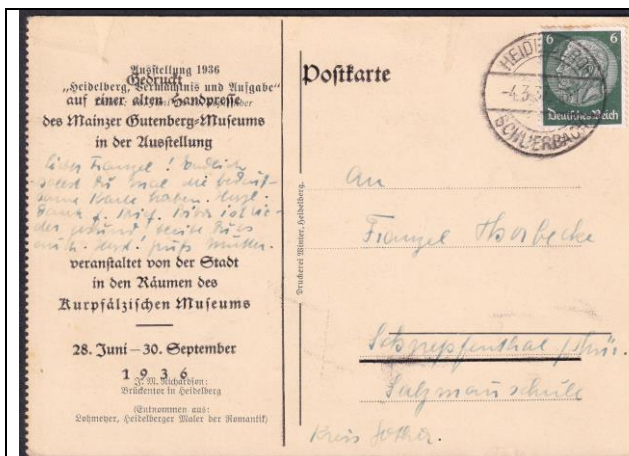 Ausstellung 1936
„Heidelberg, Vermächtnis und Aufgabe"
Gedruckt
auf einer alten Handpresse
des Mainzer Gutenberg-Museums
in der Ausstellung
Lieber Franzel! Endlich
sollst Du mal die
Karte haben.
Dank f. Brief.
gesund, bleibe Du es
auch. Gruß Mutter.
veranstaltet von der Stadt
in den Räumen des
Kurpfälzischen Museums
28. Juni – 30. September
1936
J. M. Richardson:
Brückentor in Heidelberg
(Entnommen aus:
Lohmeyer, Heidelberger Maler der Romantik)
Druckerei Winter, Heidelberg.
Postkarte
6 6
Deutsches Reich
HEIDELBERG
-4.3.3
SCHLIERBACH
An
Franzel Thorbecke
Schnepfenthal / Thür.
Salzmannschule
Kreis Gotha.